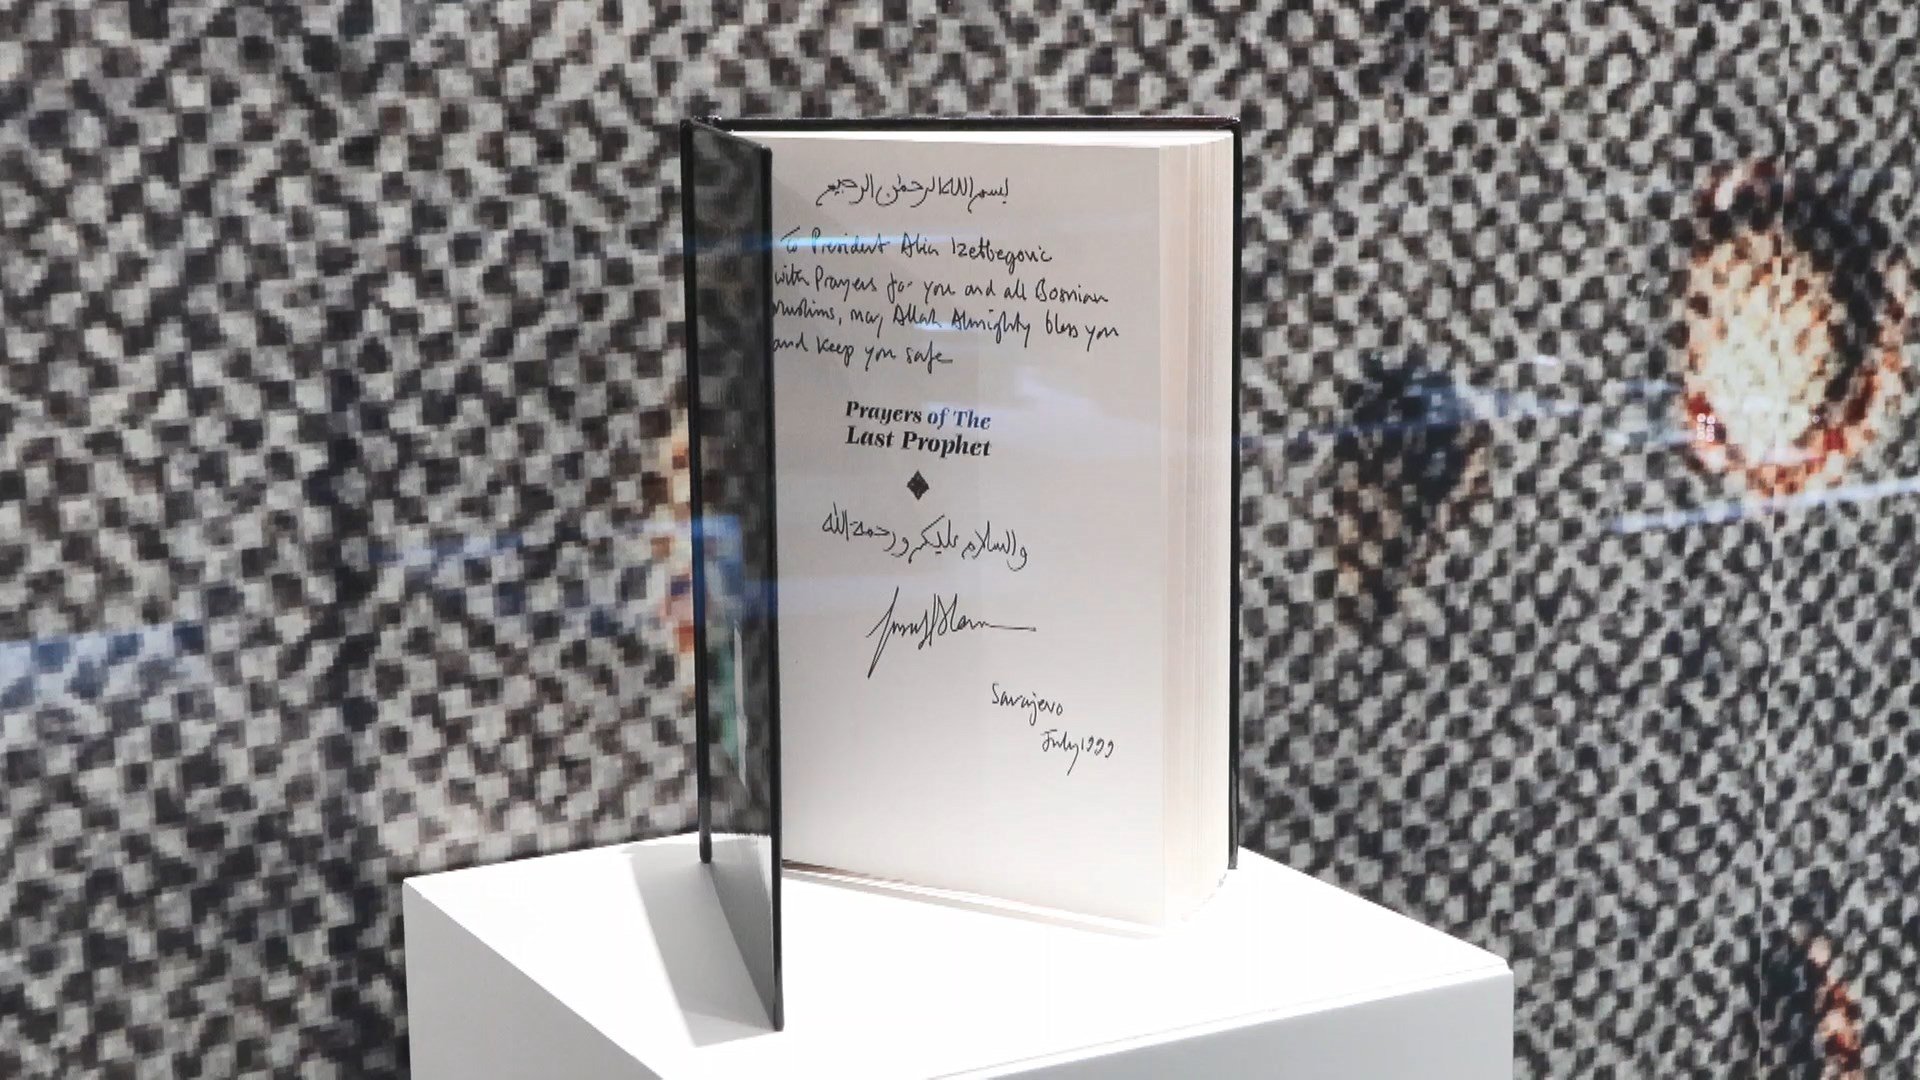 بسم الله الرحمن الرحيم
To President Alia Izetbegovic
with Prayers for you and all Bosnian
Muslims, may Allah Almighty bless you
and keep you safe
Prayers of The
Last Prophet
والسلام عليكم ورحمة الله
Yusuf Islam
Sarajevo
July 1999